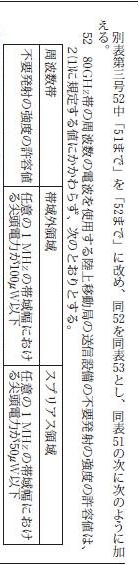 別表第三号52中「51まで」を「52まで」に改め、同52を同表53とし、同表51の次に次のように加
える。
52 80GHz帯の周波数の電波を使用する陸上移動局の送信設備の不要発射の強度の許容値は、
2(1)に規定する値にかかわらず、次のとおりとする。
周波数帯 帯域外領域 スプリアス領域
不要発射の強度の許容値 任意の1MHzの帯域幅におけ 任意の1MHzの帯域幅におけ
る尖頭電力が100μW以下 る尖頭電力が50μW以下